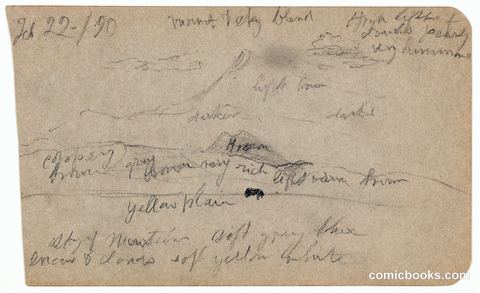 Feb 22-/90
mount & sky blend
High lights of
clouds pearly
very luminous
light brown
darker
darker
brown
coppery
brown
gray
brown very rich
light warm brown
yellow plain
sky & mountain soft grey blue
snow & clouds soft yellow white
comicbooks.com